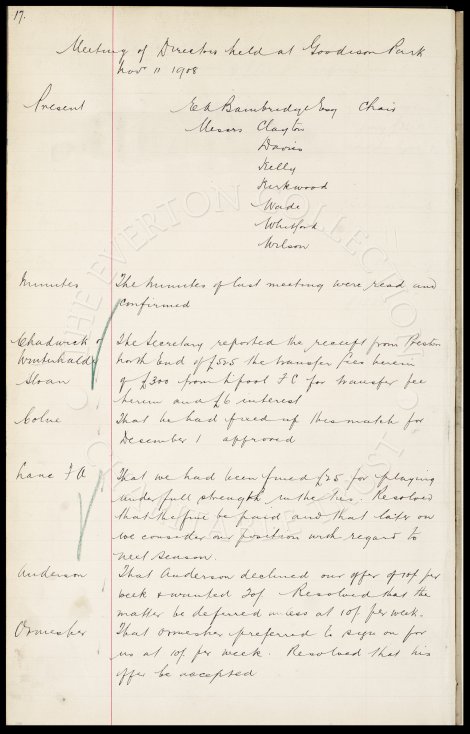 17.
Meeting of Directors held at Goodison Park
Nov 11 1908
Present Ed Bambridge Esq Chair
Messrs Clayton
Davies
Kelly
Kirkwood
Wade
Whitford
Wilson
Minutes The Minutes of last meeting were read and
confirmed
Chadwick & The Secretary reported the receipt from Preston
Winterhalder North End of £525 the transfer fees herein
Sloan of £300 from L'pool F C for transfer fee
herein and £6 interest
Colne That he had fixed up this match for
December 1 approved
Lanc F A That we had been fined £25 for playing
under full strength in the ties. Resolved
that the fine be paid and that later on
we consider our position with regard to
next season.
Anderson That Anderson declined our offer of 10/ per
week & wanted 20/ Resolved that the
matter be deferred at 10/ per week.
Ormesher That Ormesher preferred to sign on for
us at 10/ per week. Resolved that his
offer be accepted
THE EVERTON COLLECTION